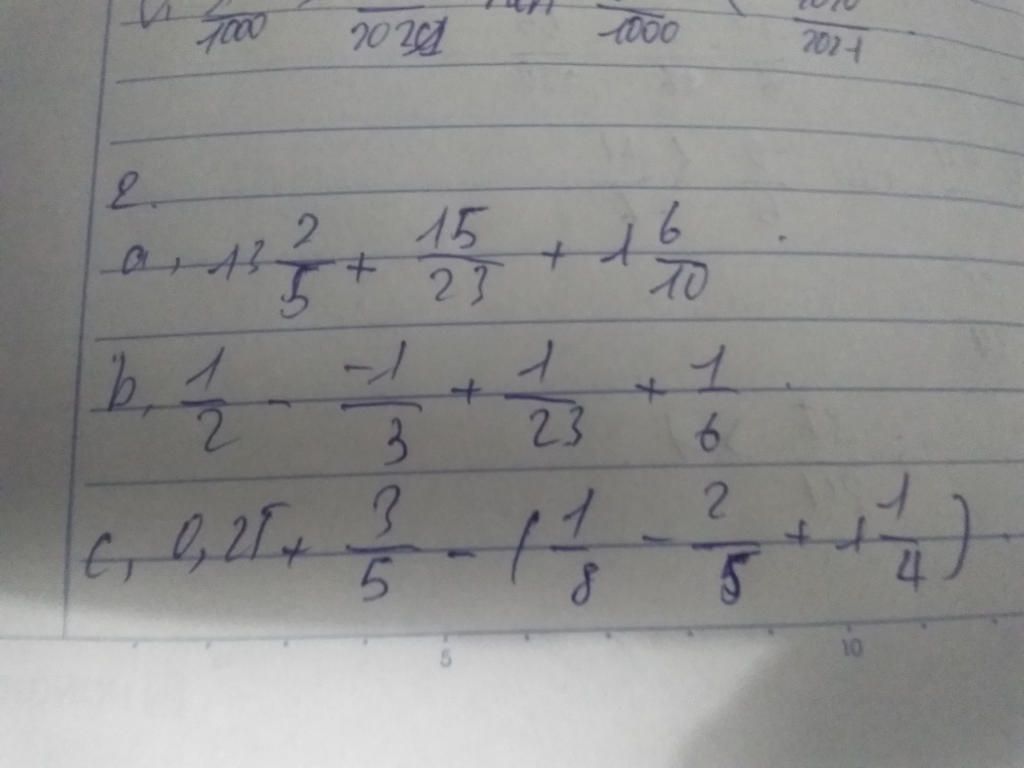 1000 2021 1000 2021
2.
a, 13 2/5 + 15/23 + 1 6/10
b, 1/2 - -1/3 + 1/23 + 1/6
c, 0,25 + 3/5 - (1/8 - 2/5 + 1 1/4)
5 10